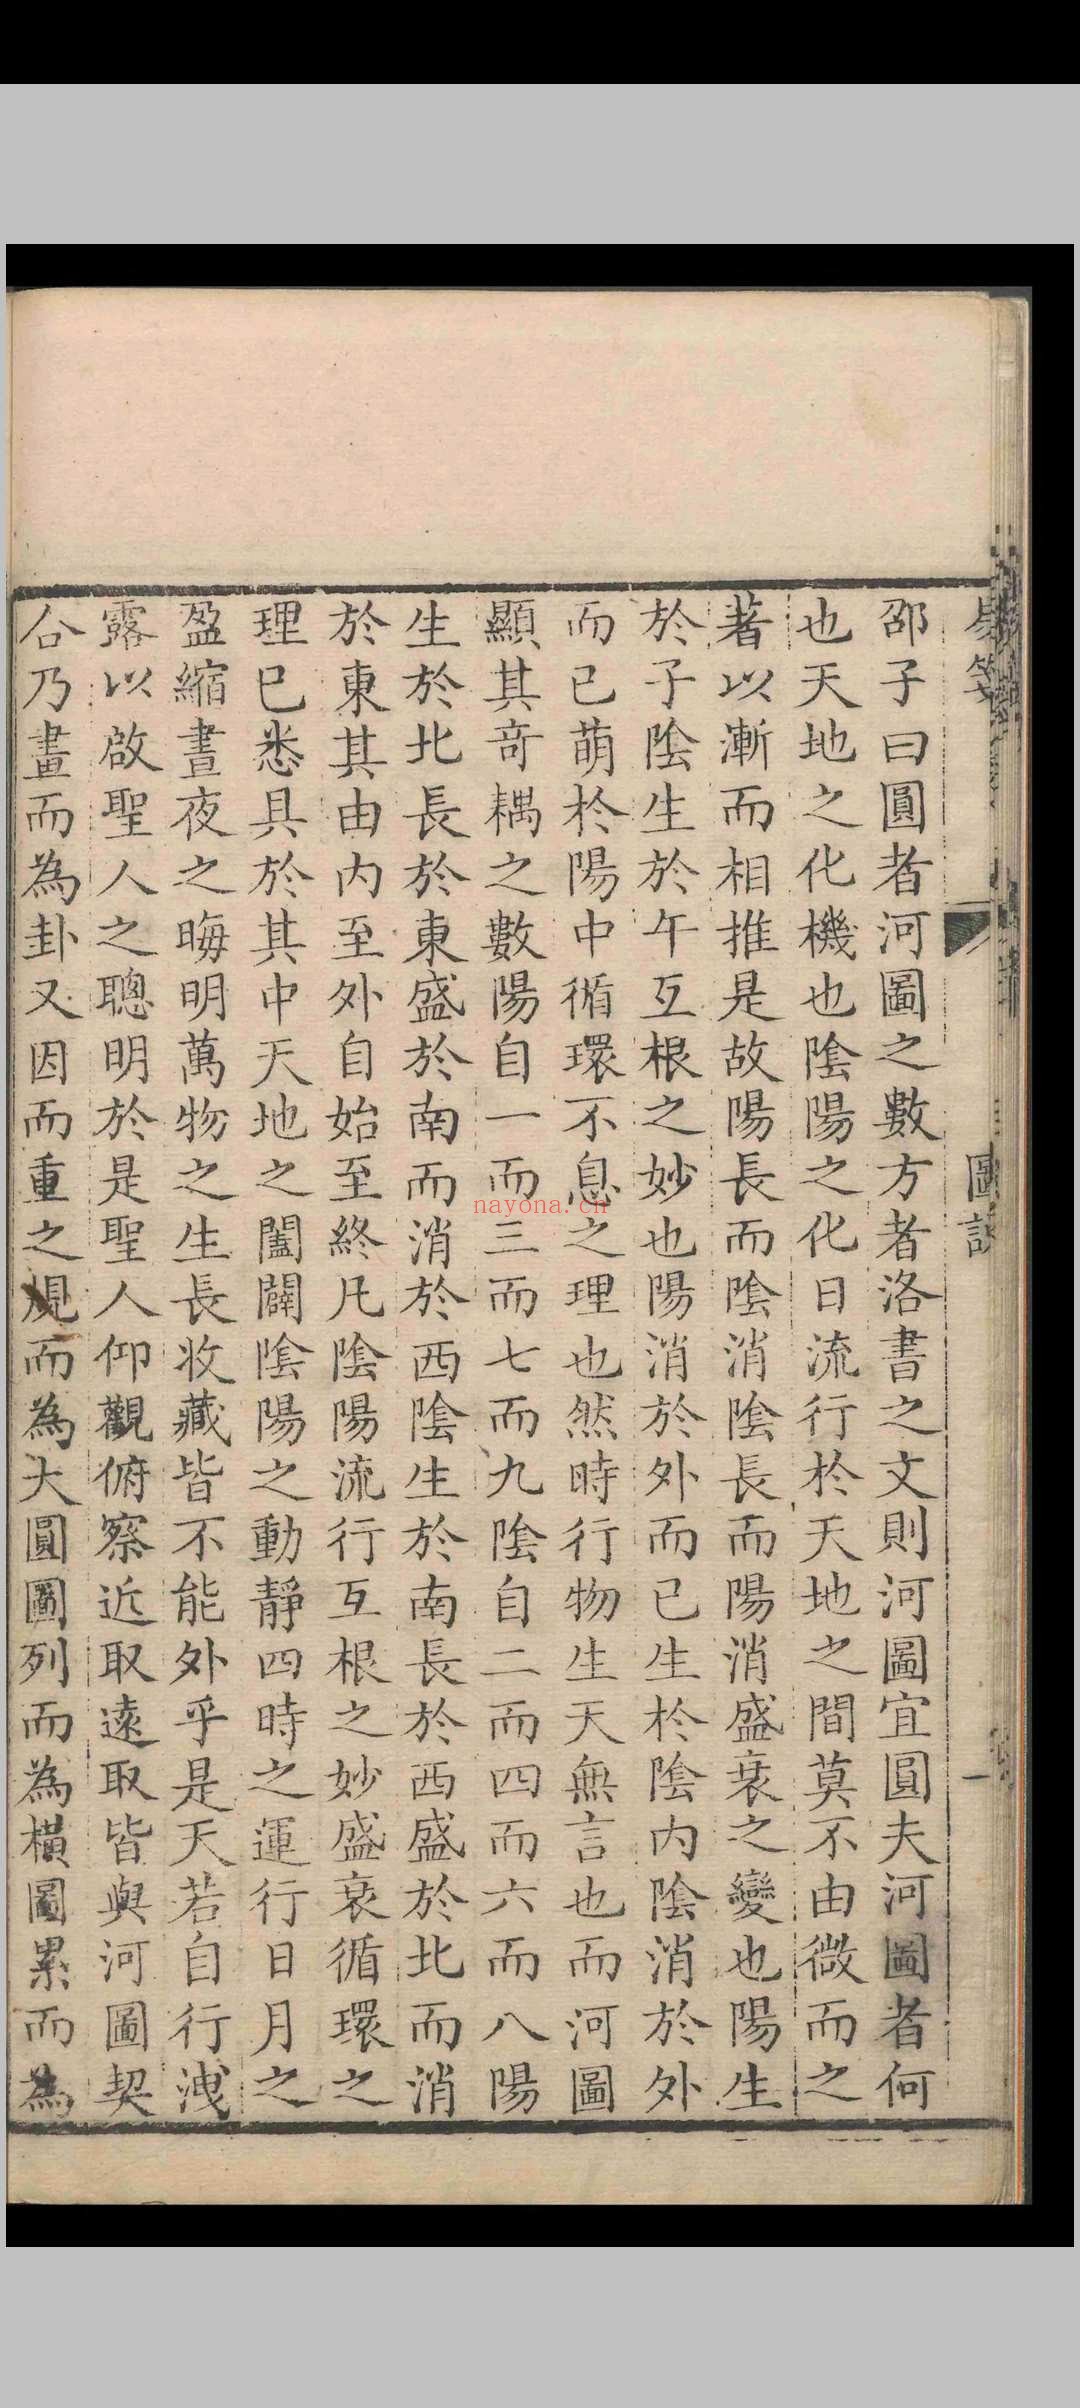 易箋
圖說
一
邵子曰圓者河圖之數方者洛書之文則河圖宜圓夫河圖者何
也天地之化機也陰陽之化日流行於天地之間莫不由微而之
著以漸而相推是故陽長而陰消陰長而陽消盛衰之變也陽生
於子陰生於午互根之妙也陽消於外而已生於陰內陰消於外
而已萌於陽中循環不息之理也然時行物生天無言也而河圖
顯其奇耦之數陽自一而三而七而九陰自二而四而六而八陽
生於北長於東盛於南而消於西陰生於南長於西盛於北而消
於東其由內至外自始至終凡陰陽流行互根之妙盛衰循環之
理已悉具於其中天地之闔闢陰陽之動靜四時之運行日月之
盈縮晝夜之晦明萬物之生長收藏皆不能外乎是天若自行洩
露以啟聖人之聰明於是聖人仰觀俯察近取遠取皆與河圖契
合乃畫而為卦又因而重之規而為大圓圖列而為橫圖累而為
nayona.cn